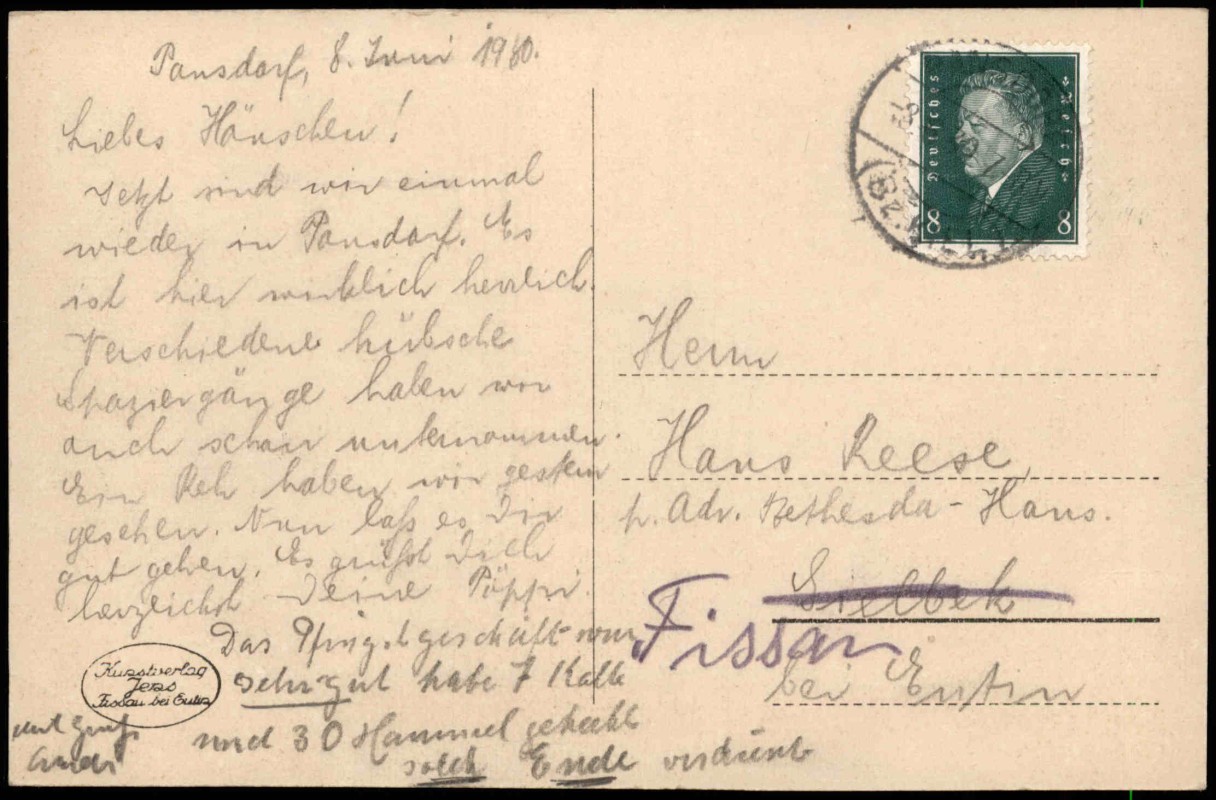 Pansdorf, 8. Juni 1930.
Liebes Hänschen!
Jetzt sind wir einmal
wieder in Pansdorf. Es
ist hier wirklich herrlich.
Verschiedene hübsche
Spaziergänge haben wir
auch schon unternommen.
Ein Reh haben wir gestern
gesehen. Nun laß es Dir
gut gehen. Es grüßt Dich
herzlichst Deine Pöppi.
Das Pfingstgeschäft war
sehr gut habe 7 Kalb
und 30 Hammel
Ende verdient
mit Gruß
Kunstverlag
Jens
Fissau bei Eutin
Deutsches Reich
8 8
Herrn
Hans Reese
p. Adr. Bethesda-Haus.
Sielbek
Fissau
bei Eutin